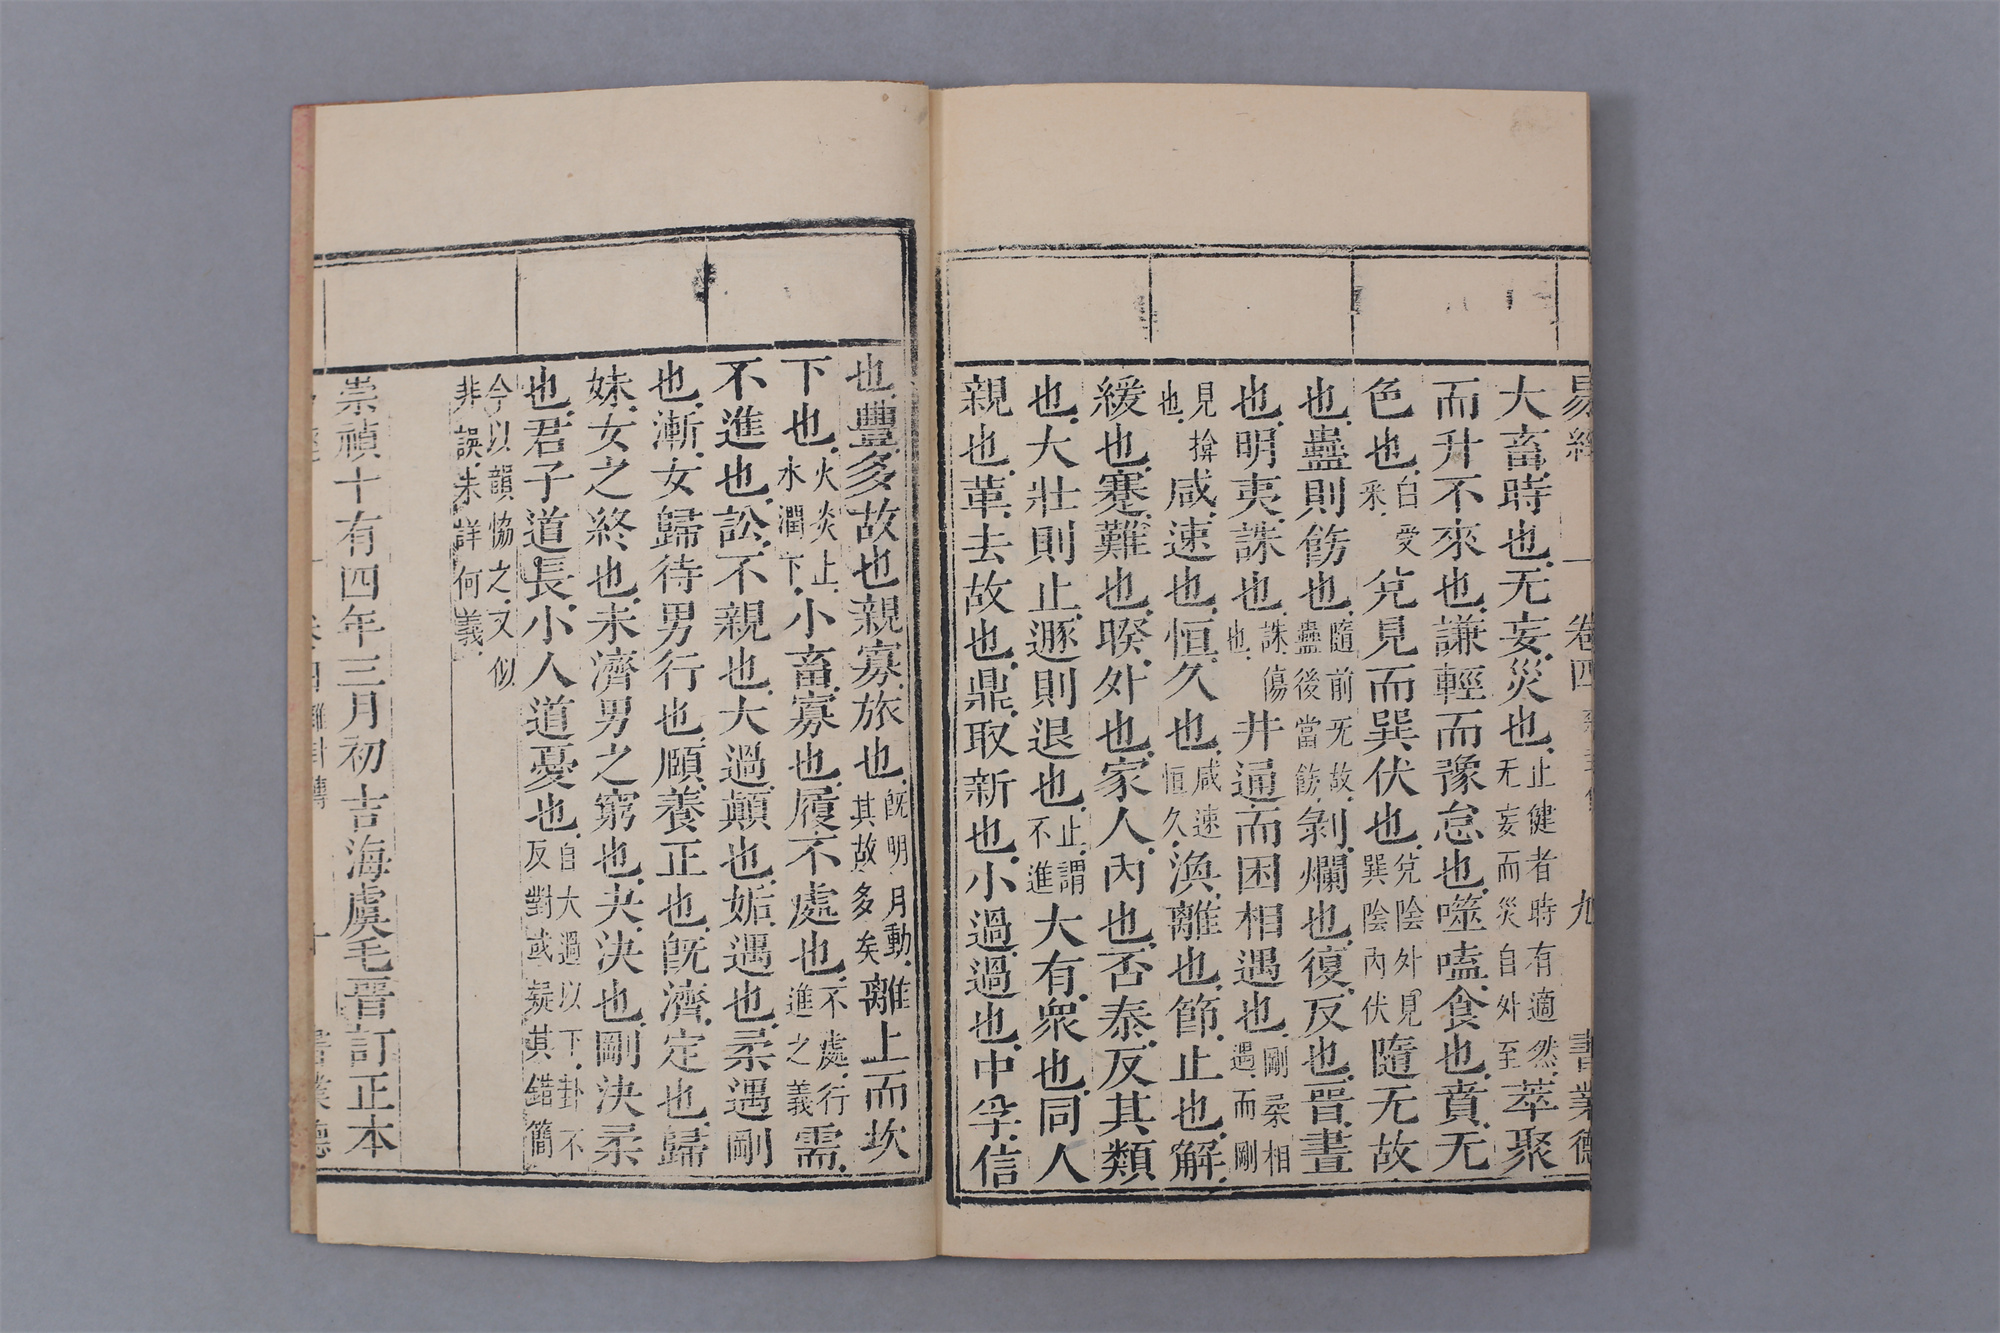 易經 卷四 九 書業德
大畜時也无妄災也止健者時有適然无妄而災自外至萃聚
而升不來也謙輕而豫怠也噬嗑食也賁无
色也白受釆兌見而巽伏也兌陰外見巽陰內伏隨无故
也蠱則飭也隨前旡故蠱後當飭剝爛也復反也晉晝
也明夷誅也誅傷也井通而困相遇也剛柔相遇而剛
見揜也咸速也恒久也咸速恒久渙離也節止也解
緩也蹇難也睽外也家人內也否泰反其類
也大壯則止遯則退也止謂不進大有衆也同人
親也革去故也鼎取新也小過過也中孚信
也豐多故也親寡旅也旣明且動其故多矣離上而坎
下也火炎上水潤下小畜寡也履不處也不處行進之義需
不進也訟不親也大過顚也姤遇也柔遇剛
也漸女歸待男行也頤養正也旣濟定也歸
妹女之終也未濟男之窮也夬決也剛決柔
也君子道長小人道憂也自大過以下卦不反對或疑其錯簡
今以韻恊之又似非誤未詳何義
崇禎十有四年三月初吉海虞毛晋訂正本
雜卦傳 書業德